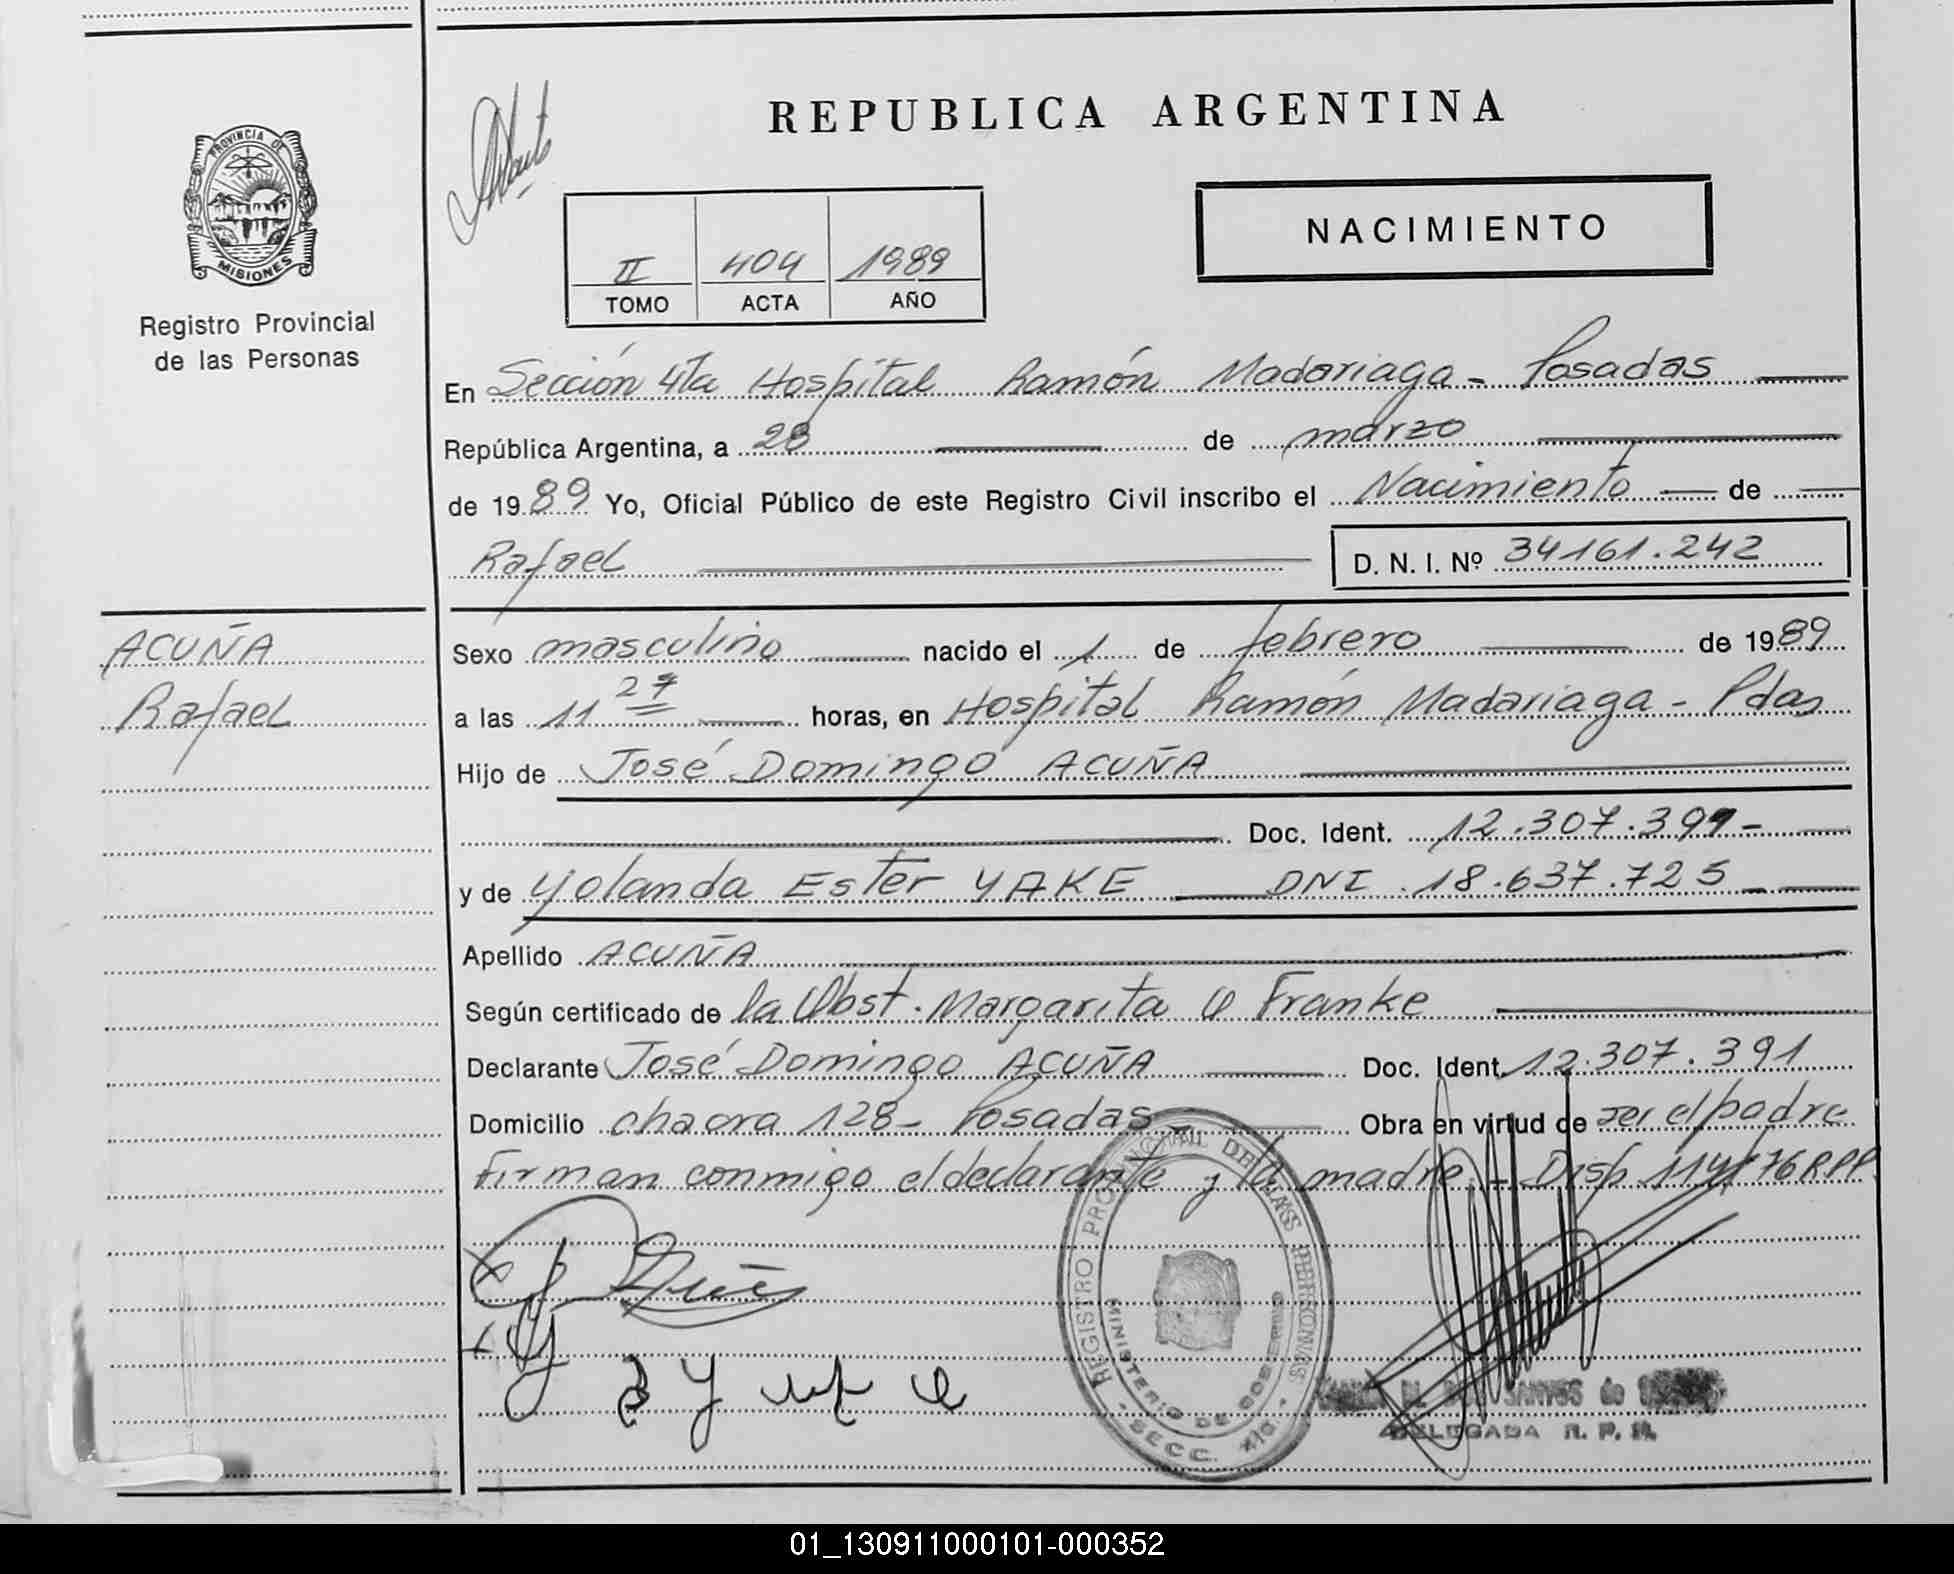 REPUBLICA ARGENTINA
PROVINCIA DE
MISIONES
Registro Provincial
de las Personas
NACIMIENTO
II 404 1989
TOMO ACTA AÑO
En Sección 4ta Hospital Ramón Madariaga - Posadas
República Argentina, a 28 de marzo
de 1989 Yo, Oficial Público de este Registro Civil inscribo el Nacimiento de
Rafael D. N. I. Nº 34161.242
ACUÑA
Rafael
Sexo masculino nacido el 1 de febrero de 1989
a las 11 27 horas, en Hospital Ramón Madariaga - Pdas
Hijo de José Domingo ACUÑA
Doc. Ident. 12.307.391-
y de Yolanda Ester YAKE DNI 18.637.725
Apellido ACUÑA
Según certificado de la Obst. Margarita Franke
Declarante José Domingo ACUÑA Doc. Ident. 12.307.391
Domicilio chacra 128- Posadas Obra en virtud de ser el padre
Firman conmigo el declarante y la madre - Disp 114/76 R.P.P.
REGISTRO PROVINCIAL DE LAS PERSONAS
MINISTERIO DE GOBIERNO
- SECC. 4ta -
DELEGADA R. P. P.
01_130911000101-000352